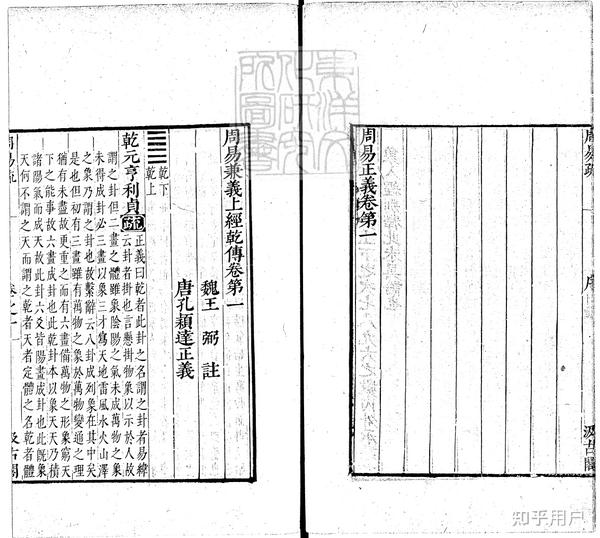 周易疏
序
汲古閣
周易正義卷第一
周易兼義上經乾傳卷第一
魏王 弼 註
唐孔穎達正義
乾下
乾上
乾元亨利貞
疏
正義曰乾者此卦之名謂之卦者易緯
云卦者掛也言懸掛物象以示於人故
謂之卦但二畫之體雖象陰陽之氣未成萬物之象
未得成卦必三畫以象三才寫天地雷風水火山澤
之象乃謂之卦也故繫辭云八卦成列象在其中矣
是也但初有三畫雖有萬物之象於萬物變通之理
猶有未盡故更重之而有六畫備萬物之形象窮天
下之能事故六畫成卦也此乾卦本以象天天乃積
諸陽氣而成天故此卦六爻皆陽畫成卦也此既象
天何不謂之天而謂之乾者天者定體之名乾者體
周易疏
卷之一
一
汲古閣
東洋文化研究所圖書
知乎用户